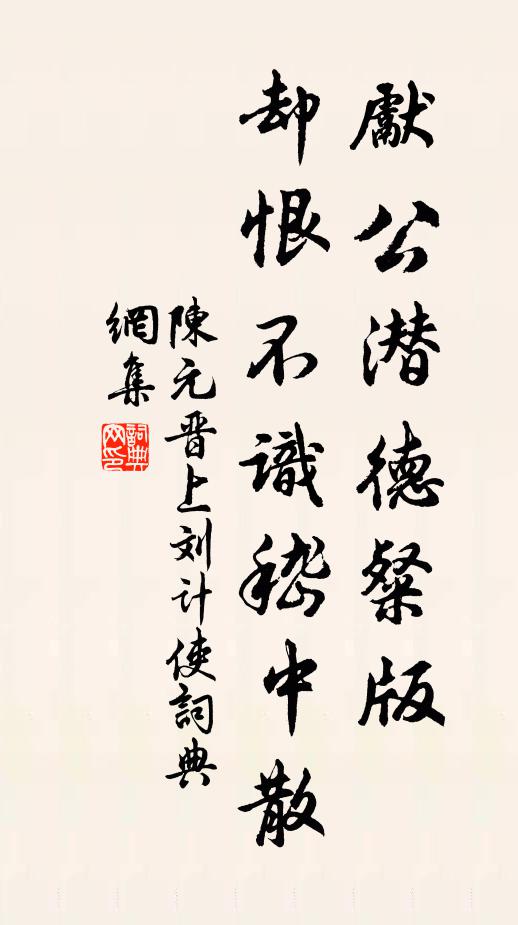 獻公潜德粲版
却恨不識嵇中散
陳元晋上刘计使詞典
網集
詞典
网印